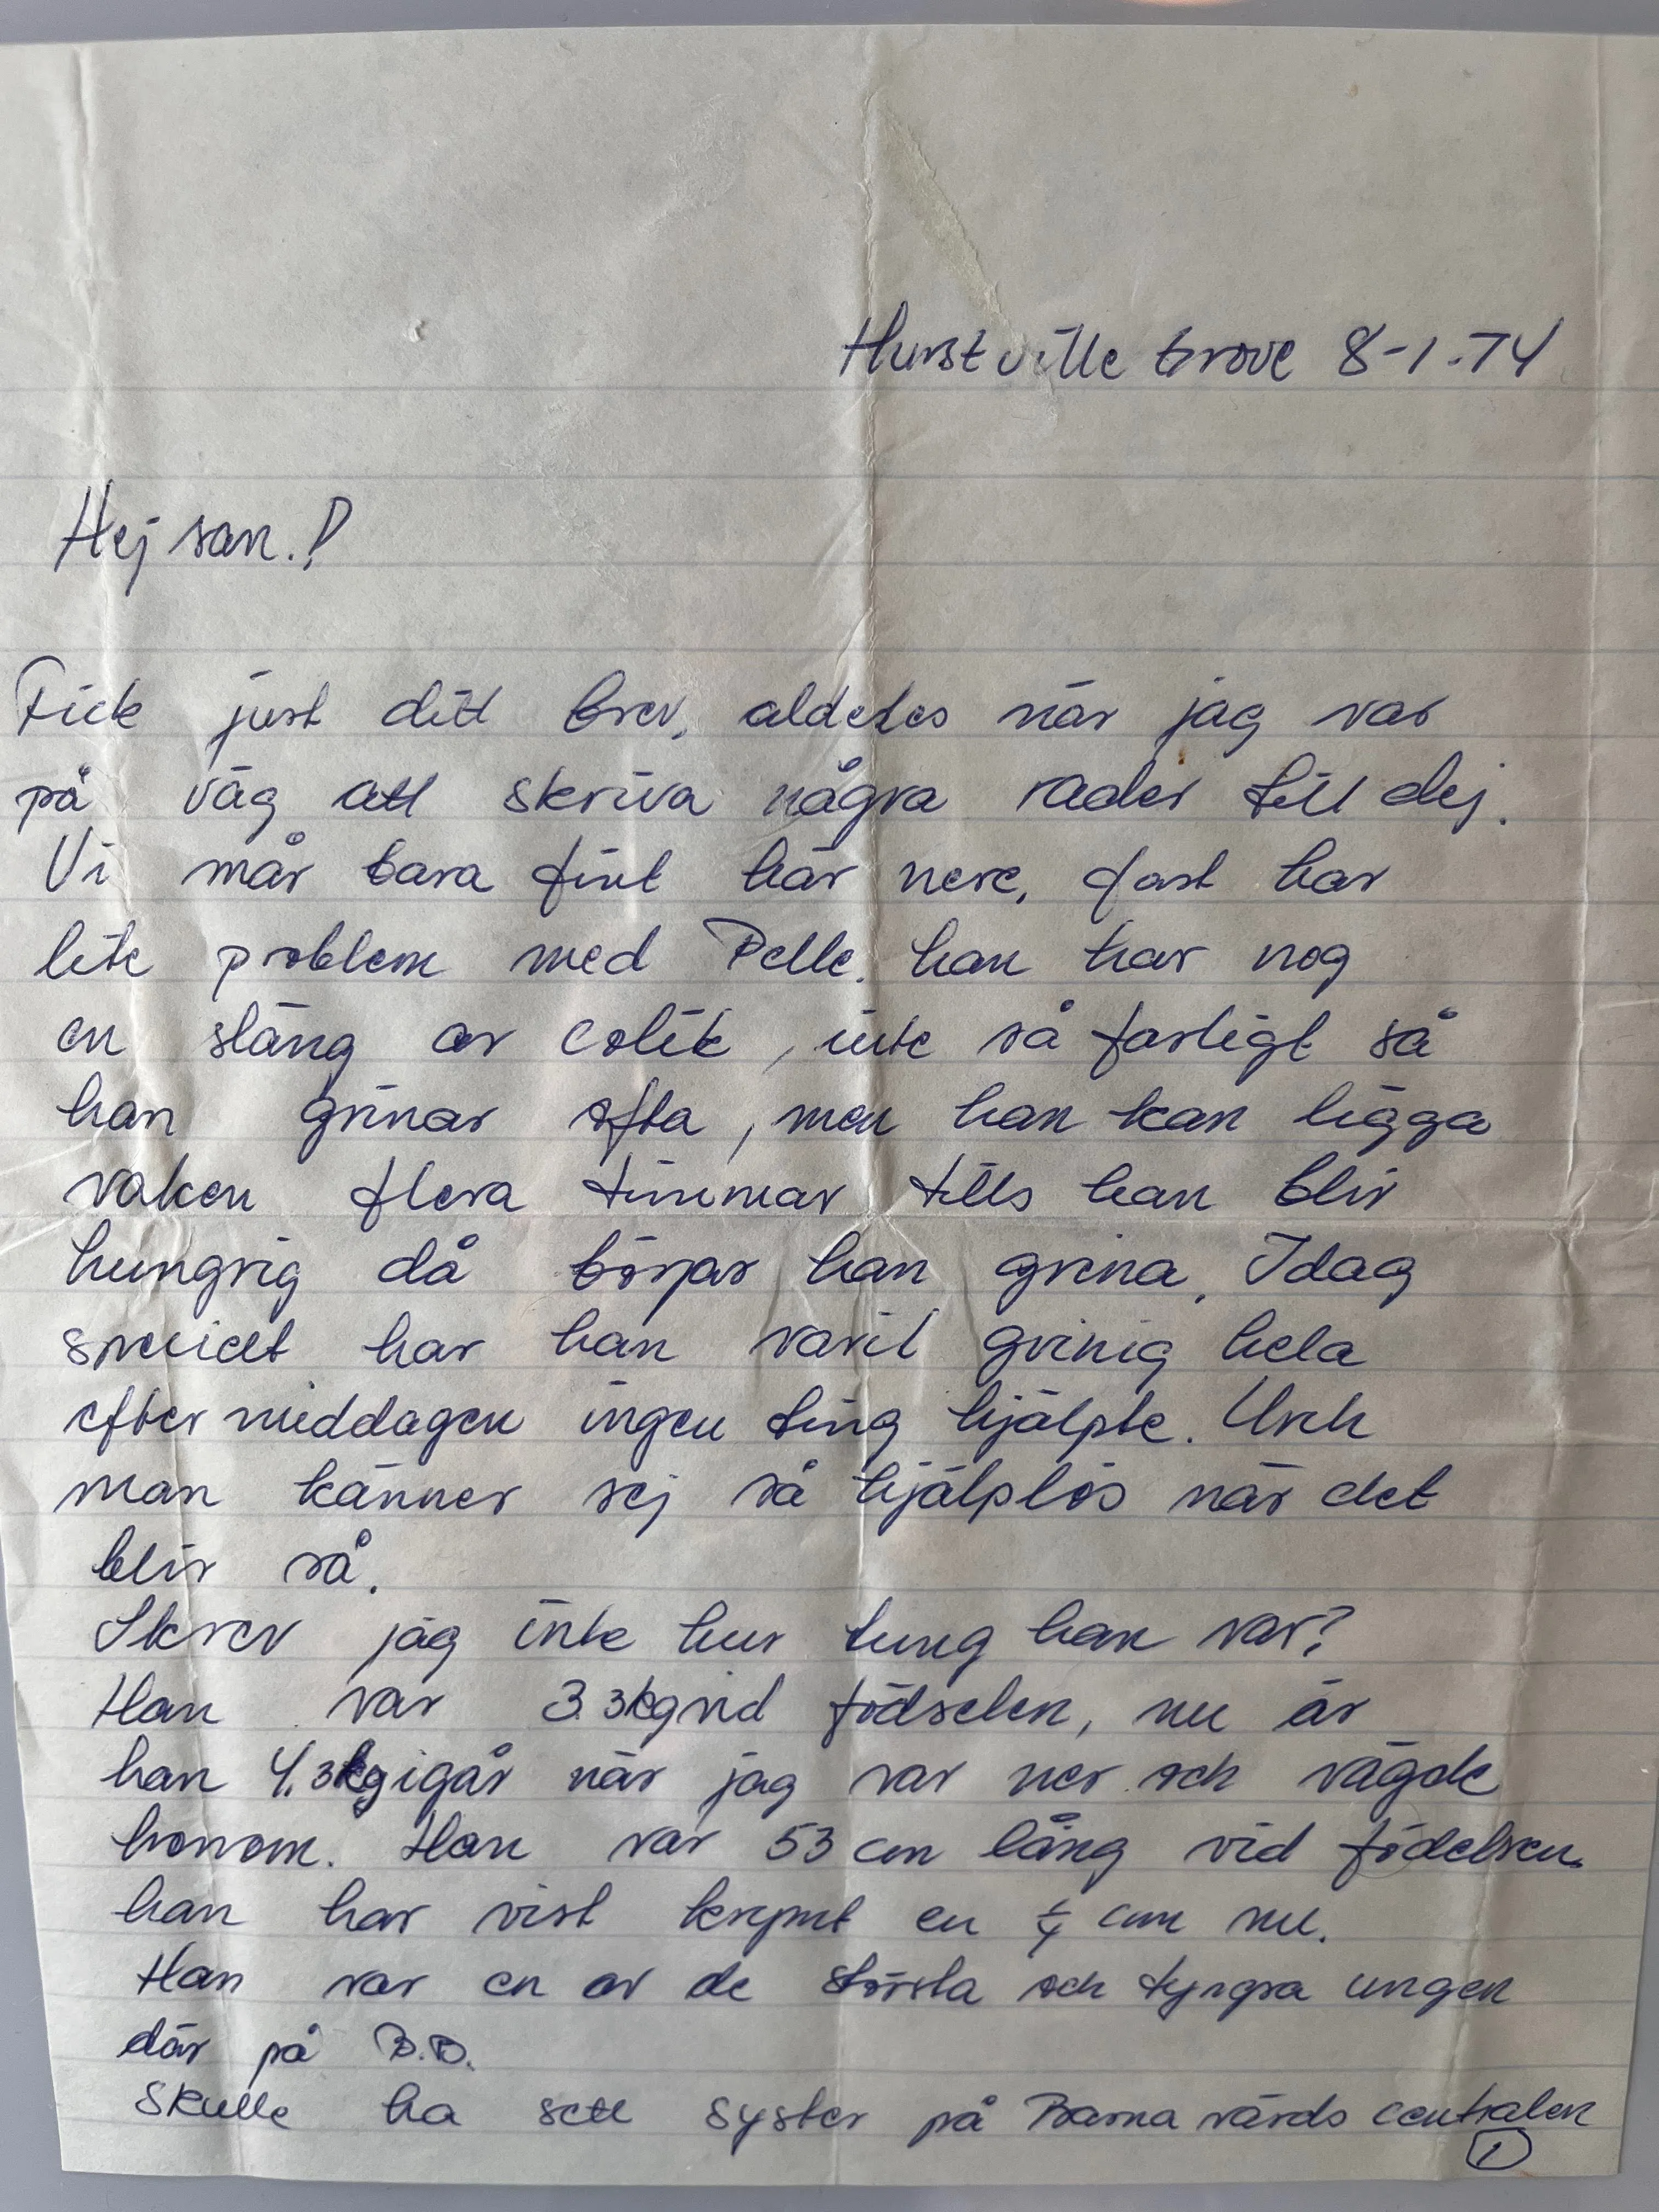 Hurstville Grove 8-1-74
Hej san.!
Fick just ditt brev, aldeles när jag var
på väg att skriva några rader till dej.
Vi mår bara fint här nere, fast har
lite problem med Pelle. han har nog
en släng av colik, inte så farligt så
han grinar ofta, men han kan ligga
vaken flera timmar tills han blir
hungrig då börjar han grina. Idag
har han varit grinig hela
eftermiddagen ingen ting hjälpte. Usch
man känner sej så hjälplös när det
blir så.
Skrev jag inte hur tung han var?
Han var 3.3kg vid födselen, nu är
han 4.3kg igår när jag var ner och vägde
honom. Han var 53 cm lång vid födelsen.
han har vist krympt en cm nu.
Han var en av de största och tyngra ungen
där på B.B.
Skulle ha sett syster på Barna vårds centralen
1